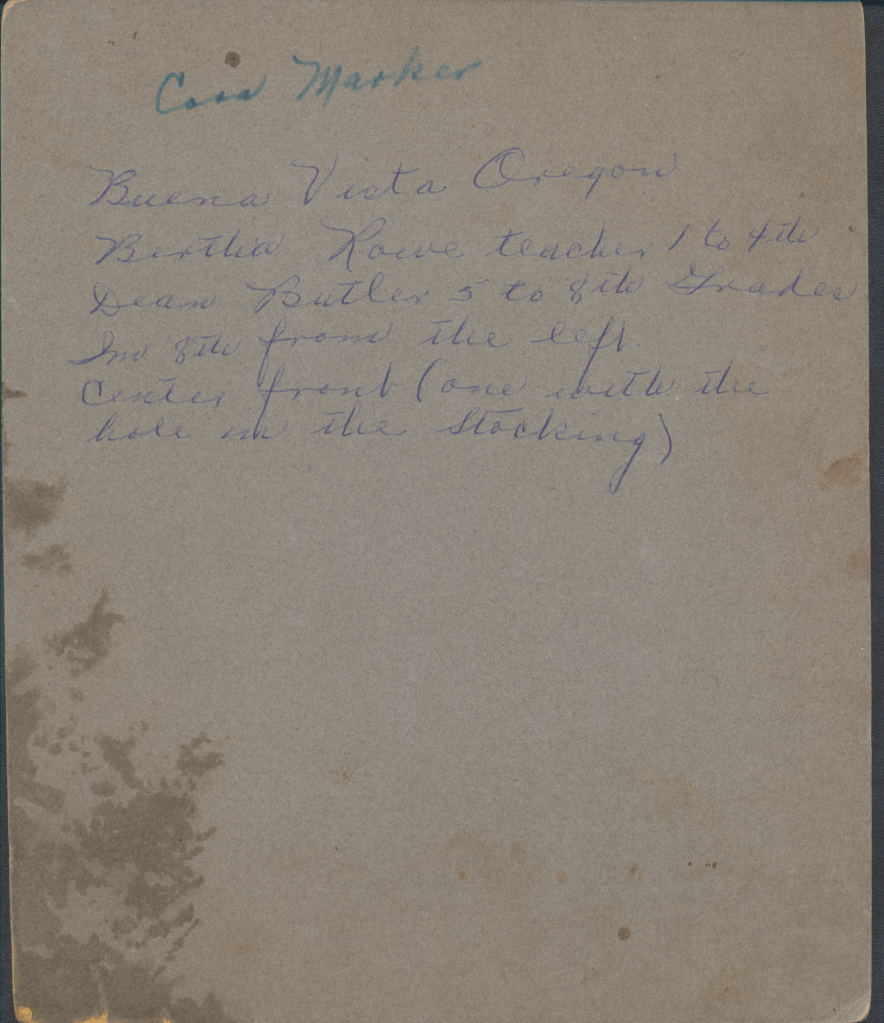 Cora Marker
Buena Vista Oregon
Bertha Rowe teacher 1 to 4th
Dean Butler 5 to 8th Grades
Im 8th from the left.
Center front (one with the
hole in the stocking)